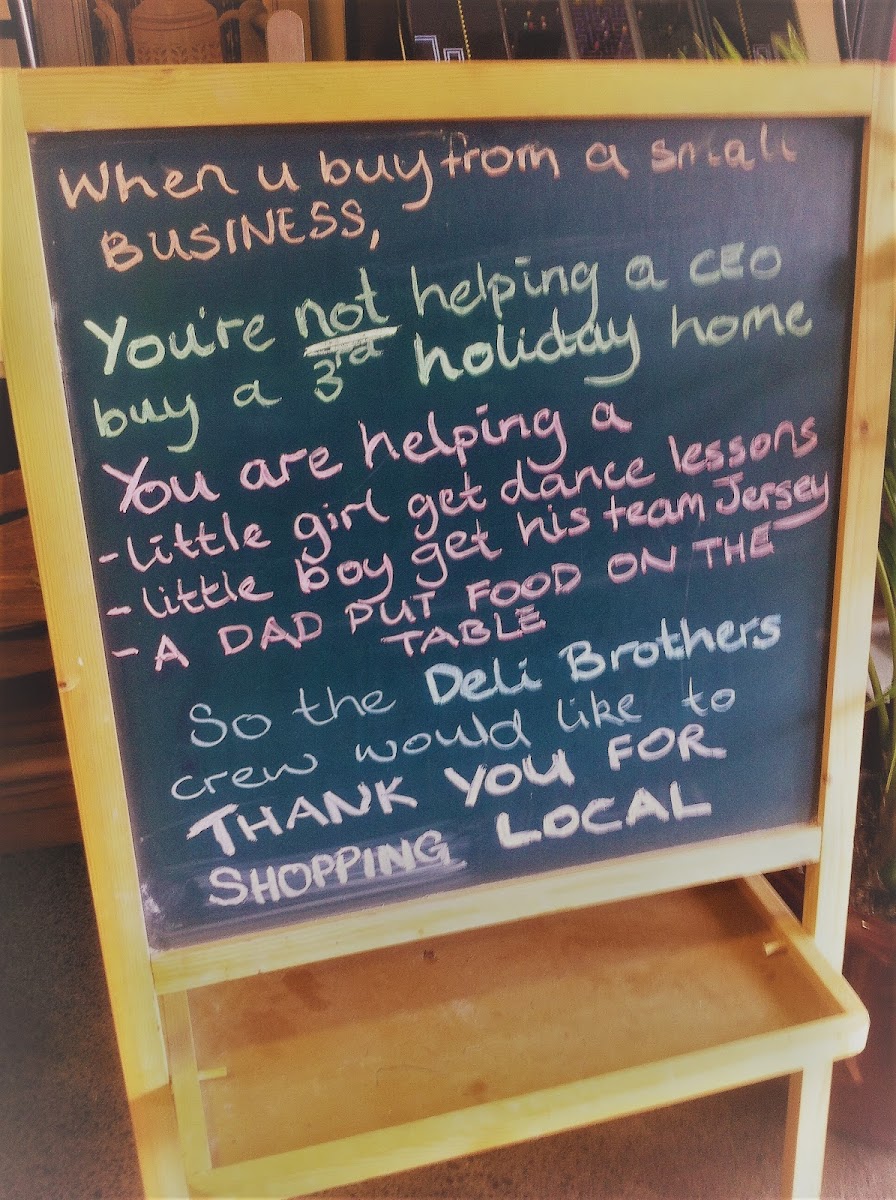 When u buy from a small
BUSINESS,
You're not helping a CEO
buy a 3rd holiday home
You are helping a
- little girl get dance lessons
- little boy get his team Jersey
- A DAD PUT FOOD ON THE
TABLE
So the Deli Brothers
crew would like to
THANK YOU FOR
SHOPPING LOCAL